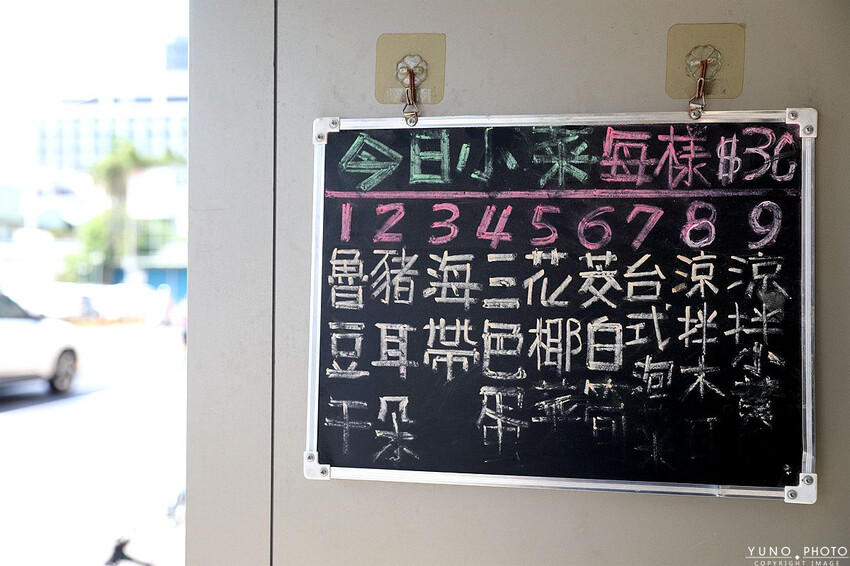 今日小菜每樣$30
1 2 3 4 5 6 7 8 9
魯豆干
豬耳朵
海帶
三色蛋
花椰菜
茭白筍
台式泡
涼拌木
涼拌小黃
YUNO PHOTO
COPYRIGHT IMAGE